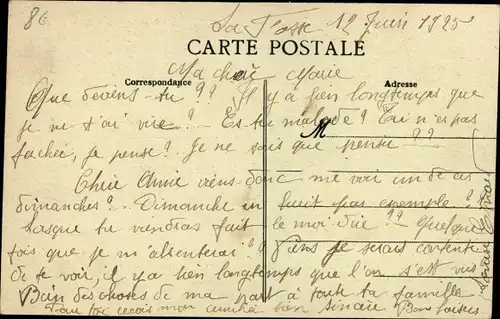 86
La Fosse 12 Juin 1925
CARTE POSTALE
Ma chère Marie
Correspondance
Adresse
Que deviens tu ?? Il y a bien longtemps que
je ne t'ai vue ? Es tu malade ? Tu n'es pas
M
fachée, je pense ? Je ne sais que penser ??
Chère Amie viens donc me voir un de ces
dimanches ? Dimanche en huit par exemple ?
Lorsque tu viendras fait le moi dire ?? Quelque
fois que je m'absenterai ? Je serais contente
de te voir, il y a bien longtemps que l'on s'est vus
Bien des choses de ma part à toute ta famille
Pour toi reçois mon amitié bien sincère Bons baisers